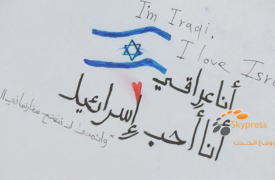 I'm Iraqi,
I love Isra
أنا عراقي
أنا أحب إسرائيل
skypress